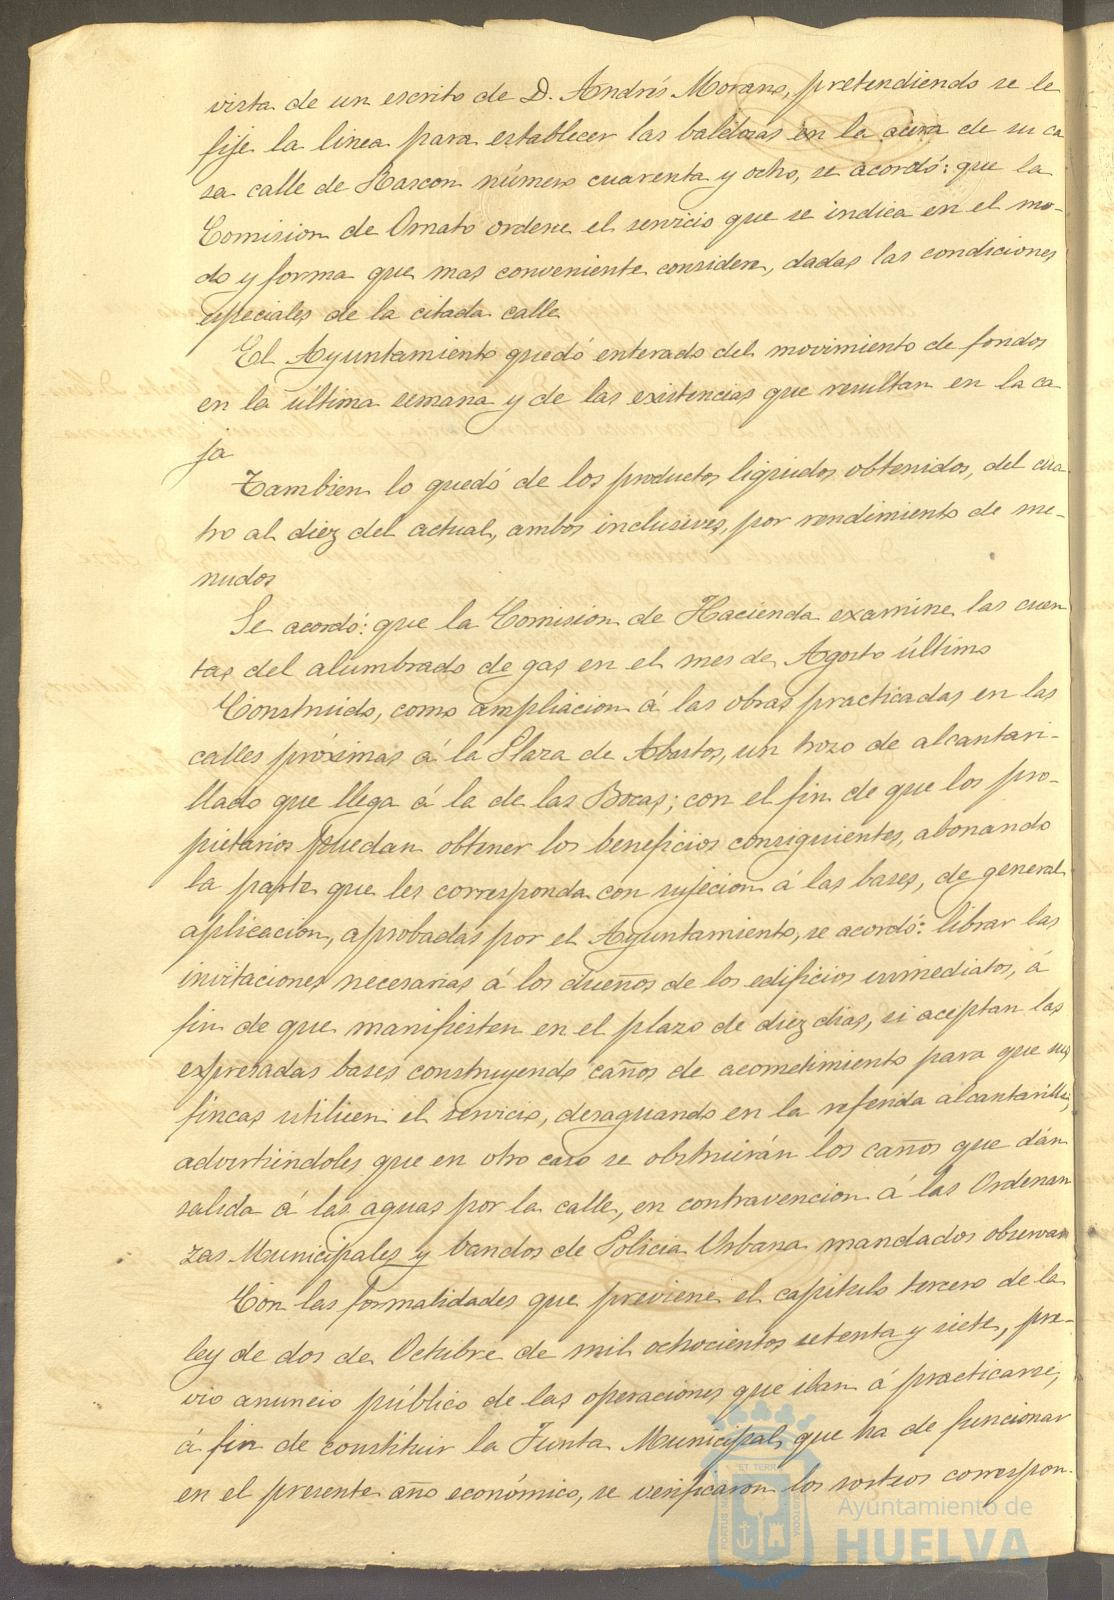 vista de un escrito de D. Andrés Morano, pretendiendo se le
fije la linea para establecer las baldozas en la acera de su ca
sa calle de Rascon número cuarenta y ocho, se acordó: que la
Comision de Ornato ordene el servicio que se indica en el mo-
do y forma que mas conveniente considere, dadas las condiciones
especiales de la citada calle
El Ayuntamiento quedó enterado del movimiento de fondos
en la última semana y de las existencias que resultan en la ca
ja
Tambien lo quedó de los productos liquidos obtenidos, del cua
tro al diez del actual, ambos inclusives, por rendimiento de me-
nudos
Se acordó: que la Comision de Hacienda examine las cuen
tas del alumbrado de gas en el mes de Agosto último
Construido, como ampliacion á las obras practicadas en las
calles próximas á la Plaza de Abastos, un trozo de alcantari-
llado que llega á la de las Bocas; con el fin de que los pro-
pietarios puedan obtener los beneficios consiguientes, abonando
la parte que les corresponda con sujecion á las bases, de general
aplicacion, aprobadas por el Ayuntamiento, se acordó: librar las
invitaciones necesarias á los dueños de los edificios inmediatos, á
fin de que manifiesten en el plazo de diez dias, si aceptan las
expresadas bases construyendo caños de acometimiento para que sus
fincas utilicen el servicio, desaguando en la referida alcantarilla,
advirtiéndoles que en otro caso se obstruirán los caños que dán
salida á las aguas por la calle, en contravencion á las Ordenan
zas Municipales y bandos de Policia Urbana mandados observar
Con las formalidades que previene el capitulo tercero de la
ley de dos de Octubre de mil ochocientos setenta y siete, pre-
vio anuncio público de las operaciones que iban á practicarse,
á fin de constituir la Junta Municipal, que ha de funcionar
en el presente año económico, se verificaron los sorteos correspon-
PORTUS MARIS ET TERRAE CUSTODIA
Ayuntamiento de
HUELVA